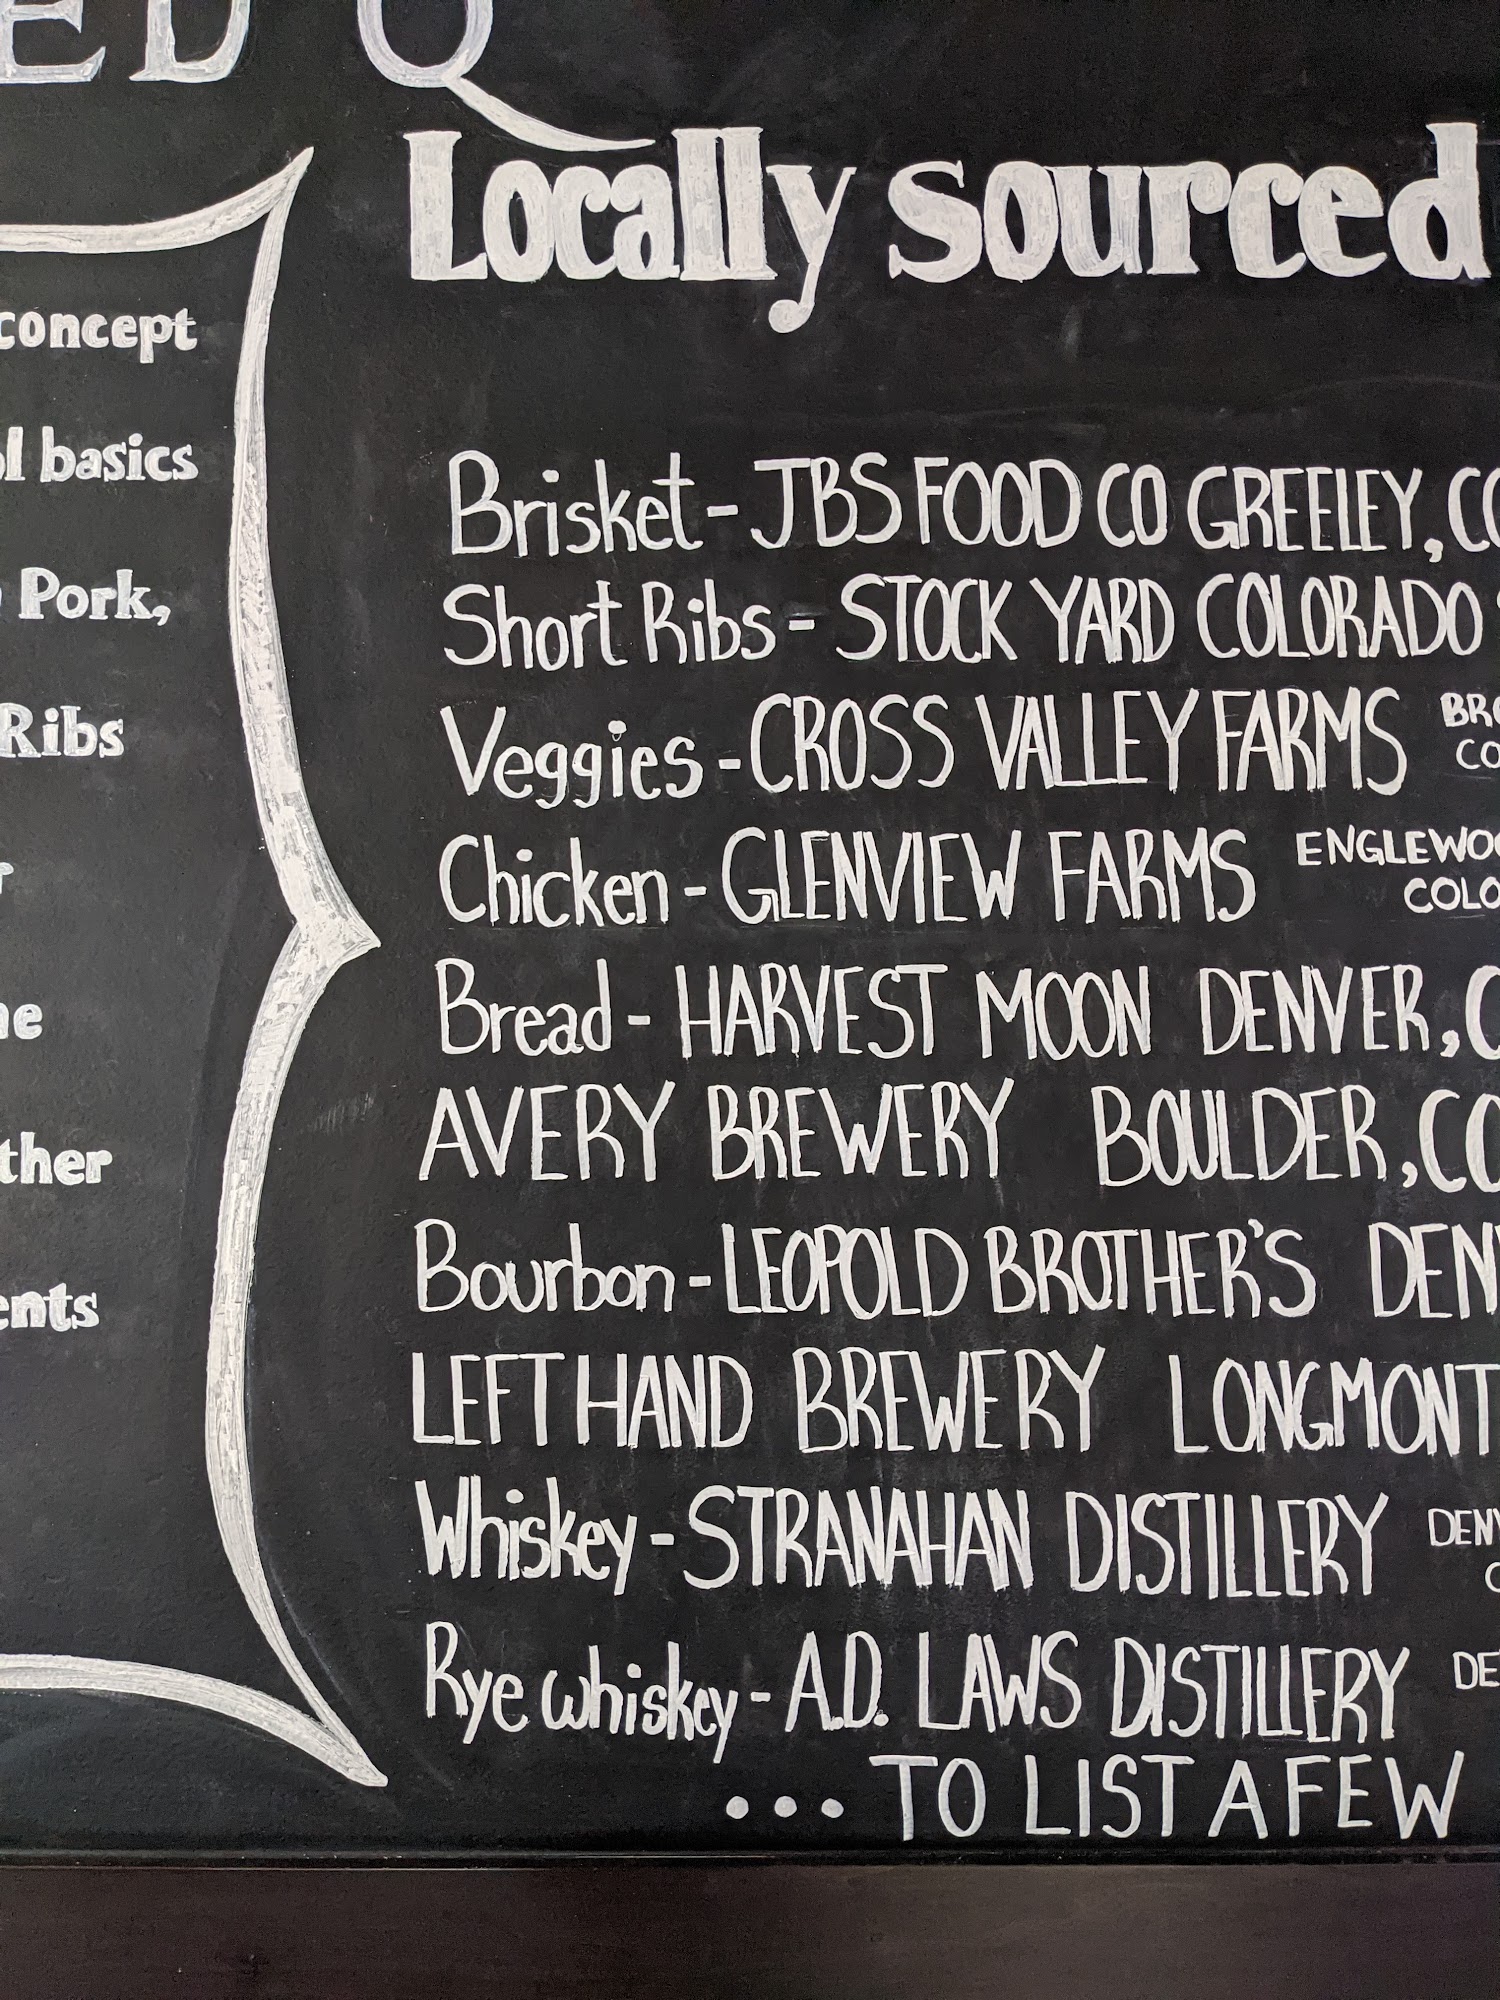 Q
Locally sourced
concept
basics
Pork,
Ribs
Brisket - JBS FOOD CO GREELEY, CO
Short Ribs - STOCK YARD COLORADO
Veggies - CROSS VALLEY FARMS
Chicken - GLENVIEW FARMS
Bread - HARVEST MOON DENVER,
AVERY BREWERY BOULDER, CO
Bourbon - LEOPOLD BROTHER'S
LEFT HAND BREWERY LONGMONT
Whiskey - STRANAHAN DISTILLERY
Rye whiskey - A.D. LAWS DISTILLERY
... TO LIST A FEW